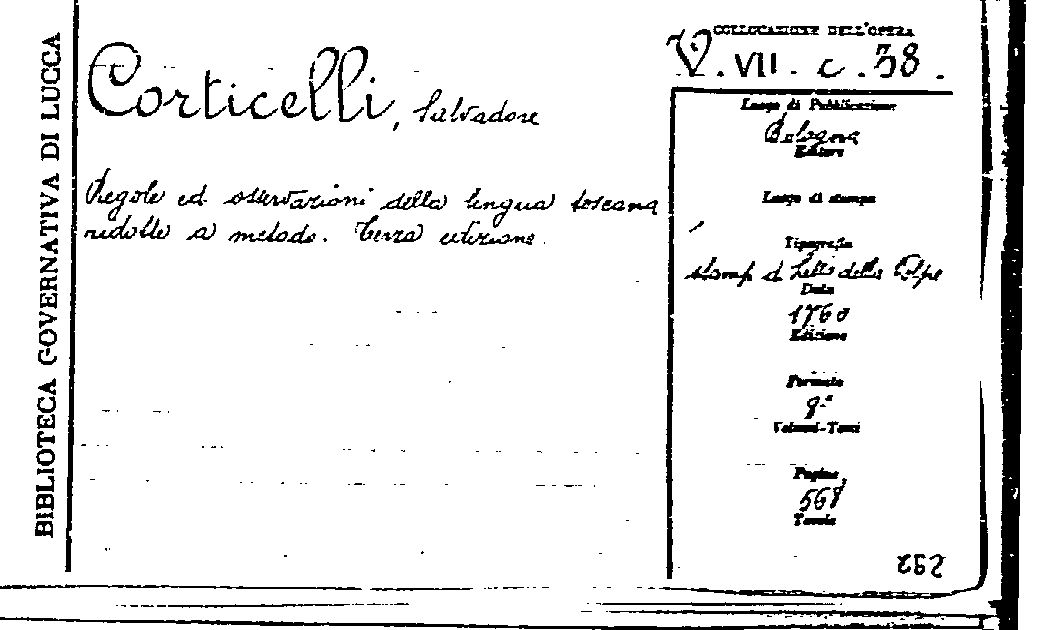 BIBLIOTECA GOVERNATIVA DI LUCCA
Corticelli, Salvadore
Regole ed osservazioni della lingua toscana
ridotte a metodo. Terza edizione.
COLLOCAZIONE DELL'OPERA
V. VII. c. 38.
Luogo di Pubblicazione
Bologna
Editore
Luogo di stampa
Tipografia
stamp d Lelio della Volpe
Data
1760
Edizione
Formato
8°
Volumi-Tomi
Pagine
568
Tavole